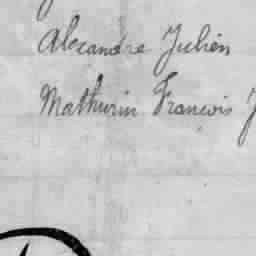 Alexandre Julien
Mathurin Francois J